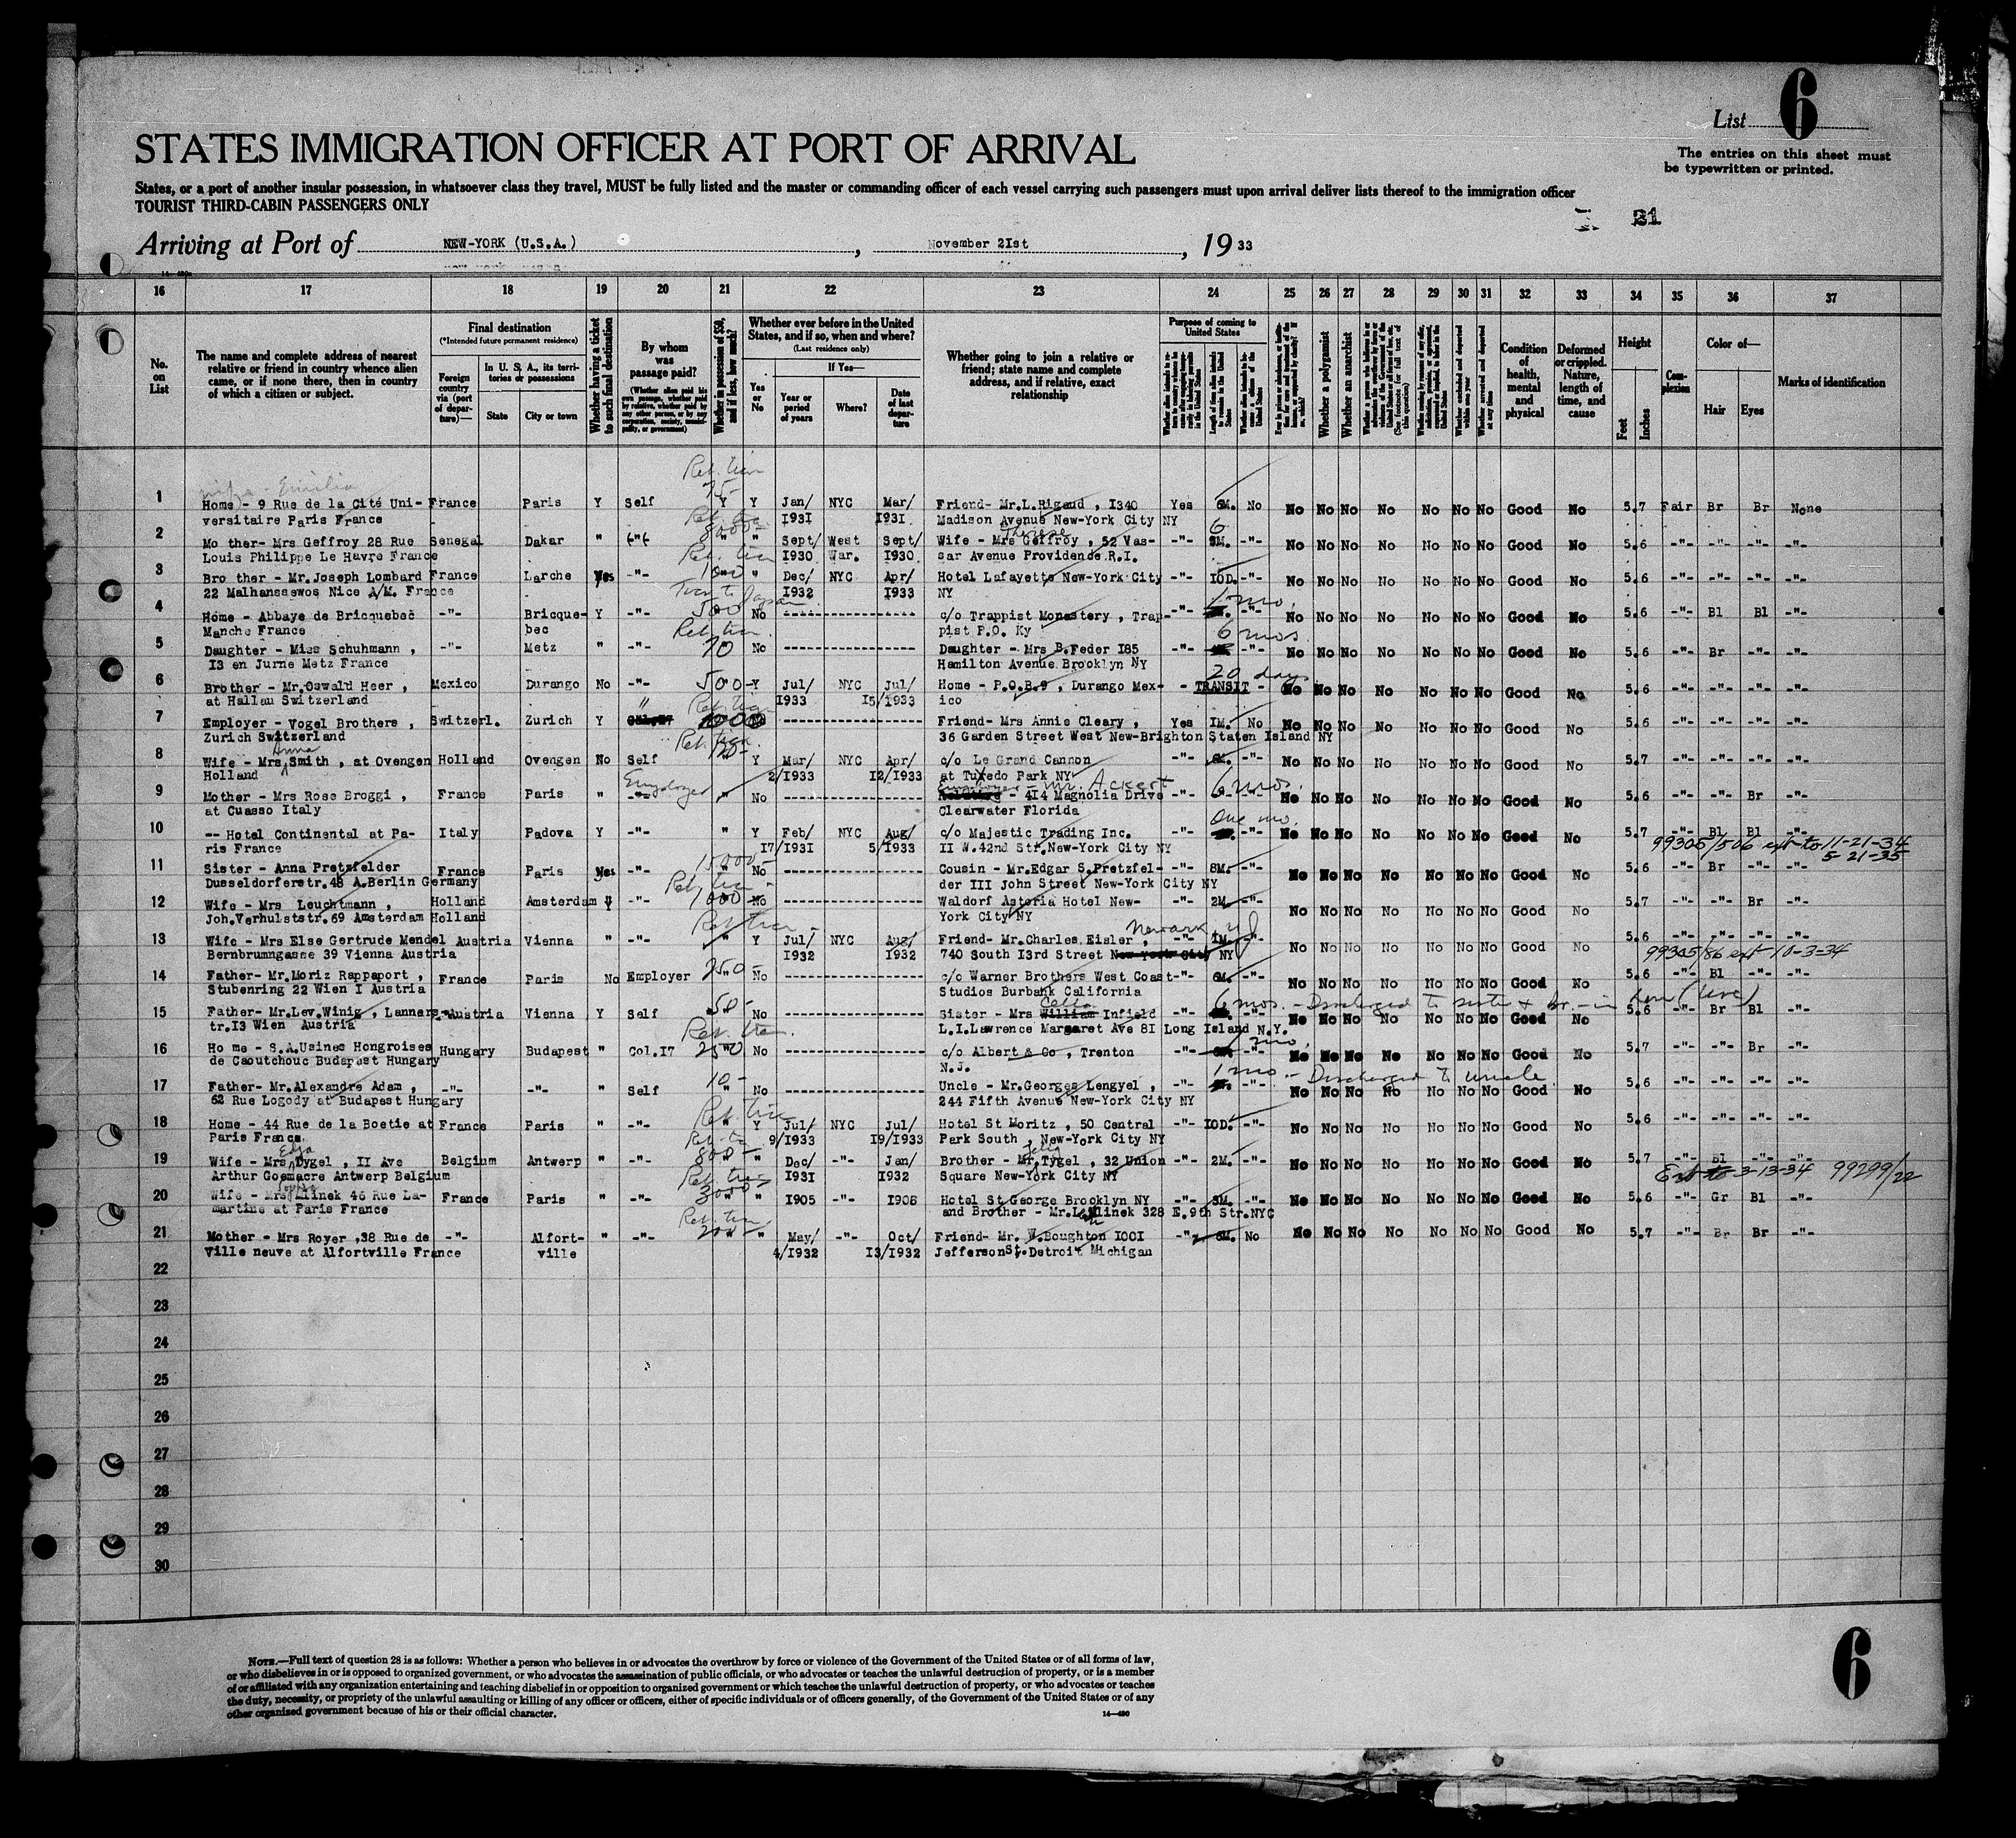 List 6
STATES IMMIGRATION OFFICER AT PORT OF ARRIVAL
The entries on this sheet must
be typewritten or printed.
States, or a port of another insular possession, in whatsoever class they travel, MUST be fully listed and the master or commanding officer of each vessel carrying such passengers must upon arrival deliver lists thereof to the immigration officer
TOURIST THIRD-CABIN PASSENGERS ONLY
31
Arriving at Port of NEW-YORK (U.S.A.) , November 2Ist , 19 33
16 17 18 19 20 21 22 23 24 25 26 27 28 29 30 31 32 33 34 35 36 37
No. on List
The name and complete address of nearest relative or friend in country whence alien came, or if none there, then in country of which a citizen or subject.
Final destination
(*Intended future permanent residence)
Foreign country via (port of departure)—
In U. S. A., its territories or possessions
State City or town
Whether having a ticket to such final destination
By whom was passage paid?
Whether in possession of $50, and if less, how much?
Whether ever before in the United States, and if so, when and where?
(Last residence only)
Yes or No
If Yes—
Year or period of years Where? Date of last departure
Whether going to join a relative or friend; state name and complete address, and if relative, exact relationship
Purpose of coming to United States
Whether a polygamist
Whether an anarchist
Condition of health, mental and physical
Deformed or crippled. Nature, length of time, and cause
Height
Feet Inches
Complexion
Color of—
Hair Eyes
Marks of identification
1 Home - 9 Rue de la Cité Uni- France Paris Y Self 75- Y Y Jan/ NYC Mar/ Friend- Mr.L.Rigaud , I340 Yes 6M. No No No No No No No No Good No 5.7 Fair Br Br None
versitaire Paris France I93I I93I Madison Avenue New-York City NY
2 Mo ther- Mrs Geffroy 28 Rue Senegal Dakar " 8000- " " Sept/ West Sept/ Wife - Mrs Geffroy , 52 Vas- -"- 6 -"- No No No No No No No Good No 5.6 -"- -"- -"- -"-
Louis Philippe Le Havre France I930 War. I930 sar Avenue Providence R.I.
3 Bro ther - Mr.Joseph Lombard France Larche Yes -"- 1000 " Dec/ NYC Apr/ Hotel Lafayette New-York City -"- IOD. -"- No No No No No No No Good No 5.6 -"- -"- -"- -"-
22 Malhansaewos Nice A/M. France I932 I933 NY
4 Home - Abbaye de Bricquebec -"- Bricque- Y -"- 500 No c/o Trappist Monastery , Trap- -"- 1 mo. -"- No No No No No No No Good No 5.6 -"- Bl Bl -"-
Manche France bec pist P.O. Ky
5 Daughter - Miss Schuhmann , -"- Metz " -"- 70 No Daughter - Mrs B.Feder I85 -"- 6 mos. -"- No No No No No No No Good No 5.6 -"- Br -"- -"-
I3 en Jurne Metz France Hamilton Avenue Brooklyn NY
6 Brother - Mr.Oswald Heer , Mexico Durango No -"- 500- Y Jul/ NYC Jul/ Home - P.O.B.9 , Durango Mex- 20 days - TRANSIT - No No No No No No No Good No 5.6 -"- -"- -"- -"-
at Hallau Switzerland I933 I5/I933 ico
7 Employer - Vogel Brothers , Switzerl. Zurich Y Friend- Mrs Annie Cleary , Yes IM. No No No No No No No No Good No 5.6 -"- -"- -"- -"-
Zurich Switzerland 36 Garden Street West New-Brighton Staten Island NY
8 Wife - Mrs Anna Smith , at Ovengen Holland Ovengen No Self " Y Mar/ NYC Apr/ c/o Le Grand Cannon -"- -"- No No No No No No No Good No 5.7 -"- -"- -"- -"-
Holland 2/I933 I2/I933 at Tuxedo Park NY
9 Mother - Mrs Rose Broggi , France Paris " Employer " No Mr. Ackert - 4I4 Magnolia Drive -"- 6 mos. -"- No No No No No No No Good No 5.6 -"- -"- Br -"-
at Cuasso Italy Clearwater Florida
10 -- Hotel Continental at Pa- Italy Padova Y -"- " Y Feb/ NYC Aug/ c/o Majestic Trading Inc. -"- One mo. -"- No No No No No No No Good No 5.7 -"- Bl Bl -"-
ris France I7/I93I 5/I933 II W.42nd Str.New-York City NY
99305/506 ext to 11-21-34
5-21-35
11 Sister - Anna Pretzfelder France Paris Yes -"- 15000- " No Cousin - Mr.Edgar S.Pretzfel- -"- 8M. -"- No No No No No No No Good No 5.6 -"- Br -"- -"-
Dusseldorferstr.48 A.Berlin Germany der III John Street New-York City NY
12 Wife - Mrs Leuchtmann , Holland Amsterdam -"- 1000- No Waldorf Astoria Hotel New- -"- 2M. -"- No No No No No No No Good No 5.7 -"- -"- Br -"-
Joh.Verhulststr.69 Amsterdam Holland York City NY
13 Wife - Mrs Else Gertrude Mendel Austria Vienna " -"- " Y Jul/ NYC Aug/ Friend- Mr.Charles Eisler , Newark NJ -"- IM. -"- No No No No No No No Good No 5.6 -"- -"- -"- -"-
Bernbrumngasse 39 Vienna Austria I932 I932 740 South I3rd Street New-York City NY
99305/86 ext 10-3-34
14 Father- Mr.Moriz Rappaport , France Paris No Employer 250- " No c/o Warner Brothers West Coast -"- 6M. -"- No No No No No No No Good No 5.6 -"- Bl -"- -"-
Stubenring 22 Wien I Austria Studios Burbank California
15 Father- Mr.Lev.Winig , Lannars- Austria Vienna Y Self 50- " No Sister - Mrs William Infield -"- 6 mos. - Discharged to sister No No No No No No No Good No 5.6 -"- Br Bl -"-
tr.I3 Wien Austria L.I.Lawrence Margaret Ave 8I Long Island N.Y.
16 Ho me - S.A.Usines Hongroises Hungary Budapest " Col.I7 2500 No c/o Albert & Co , Trenton -"- -"- No No No No No No No Good No 5.7 -"- -"- Br -"-
de Caoutchouc Budapest Hungary N.J.
17 Father- Mr.Alexandre Adam , -"- -"- " Self 10- " No Uncle - Mr.Georges Lengyel , -"- 1 mo. - Discharged to uncle No No No No No No No Good No 5.6 -"- -"- -"- -"-
62 Rue Logody at Budapest Hungary 244 Fifth Avenue New-York City NY
18 Home - 44 Rue de la Boetie at France Paris " -"- " Y Jul/ NYC Jul/ Hotel St Moritz , 50 Central -"- IOD. -"- No No No No No No No Good No 5.6 -"- -"- -"- -"-
Paris France. 9/I933 I9/I933 Park South , New-York City NY
19 Wife - Mrs Tygel , II Ave Belgium Antwerp " -"- 800- " " Dec/ -"- Jan/ Brother - Mr.Tygel , 32 Union -"- 2M. -"- No No No No No No No Good No 5.7 -"- Bl -"- -"-
Arthur Goemaere Antwerp Belgium I93I I932 Square New-York City NY
Ext to 3-13-34 99299/22
20 Wife - Mrs Mlinek 46 Rue La- France Paris " -"- 3000 " " I905 -"- I908 Hotel St George Brooklyn NY -"- 3M. -"- No No No No No No No Good No 5.6 -"- Gr Bl -"-
martine at Paris France and Brother - Mr.L.Mlinek 328 E.9th Str.NYC
21 Mother - Mrs Royer ,38 Rue de -"- Alfort- " -"- 200- " " May/ -"- Oct/ Friend- Mr. W.Boughton I00I -"- 6M. No No No No No No No No Good No 5.7 -"- Br Br -"-
Ville neuve at Alfortville France ville 4/I932 I3/I932 Jefferson St.Detroit Michigan
22
23
24
25
26
27
28
29
30
NOTE.—Full text of question 28 is as follows: Whether a person who believes in or advocates the overthrow by force or violence of the Government of the United States or of all forms of law,
or who disbelieves in or is opposed to organized government, or who advocates the assassination of public officials, or who advocates or teaches the unlawful destruction of property, or is a member
of or affiliated with any organization entertaining and teaching disbelief in or opposition to organized government or which teaches the unlawful destruction of property, or who advocates or teaches
the duty, necessity, or propriety of the unlawful assaulting or killing of any officer or officers, either of specific individuals or of officers generally, of the Government of the United States or of any
other organized government because of his or their official character.
14—490
6